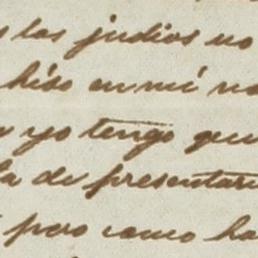 los judios no
hiso en mi
yo tengo que
la de presentar
pero como ha